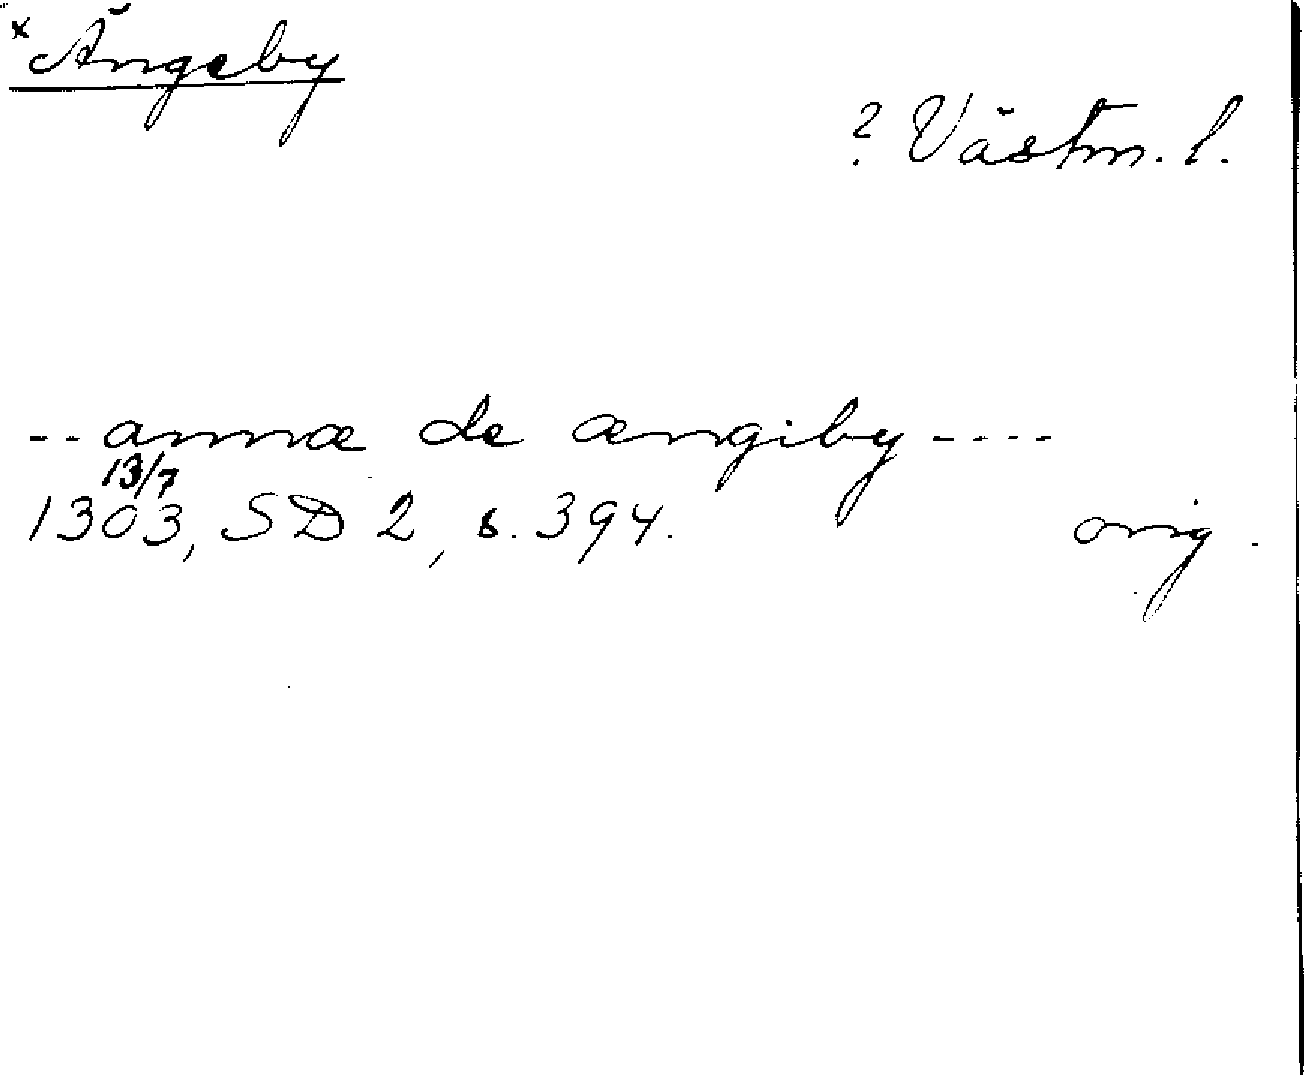 x Ängeby
? Västm. l.
-- annæ de ængiby ----
13/7
1303, SD 2, s. 394.
orig.